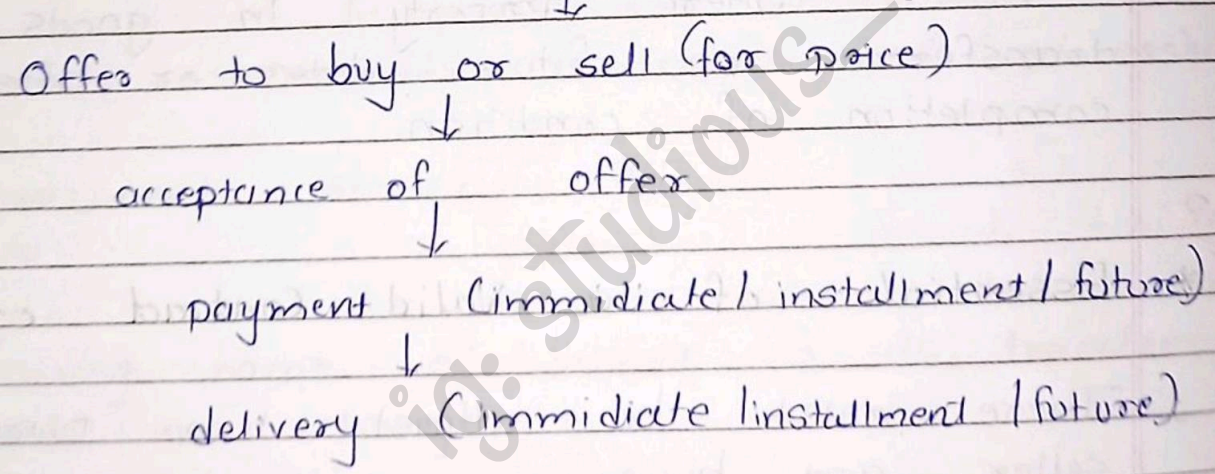 Offer to buy or sell (for price)
↓
acceptance of offer
↓
payment (immidiate / installment / future)
↓
delivery (immidiate / installment / future)
ig: studious_